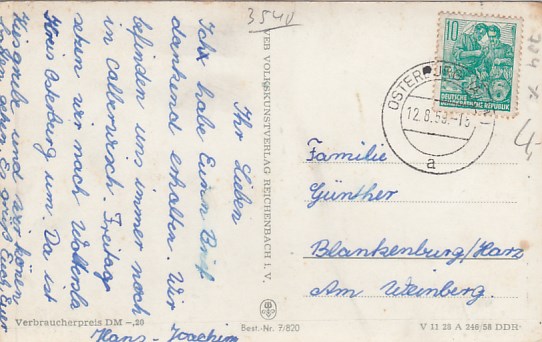 3540
Ihr Lieben
Jahr habe Euren Brief
dankend erhalten. Wir
befinden uns immer noch
in Calberwisch. Freitag
setzen wir nach
Kreis Osterburg um. Da ist
und wir können
Euch Euer
Hans-Joachim
Verbraucherpreis DM -,20
VEB VOLKSKUNSTVERLAG REICHENBACH I. V.
Best.-Nr. 7/820
10
DEUTSCHE
DEMOKRATISCHE REPUBLIK
OSTERBURG
12.8.59.-13
a
4,-
Familie
Günther
Blankenburg/Harz
Am Weinberg.
V 11 28 A 246/58 DDR